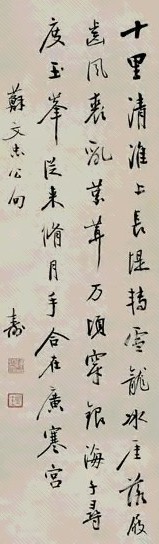 十里清淮上長堤轉雪龍冰崖落屐
齒風裘亂葉茸万頃穿銀海千尋
度玉峯從來脩月手合在廣寒宮
蘇文忠公句
壽